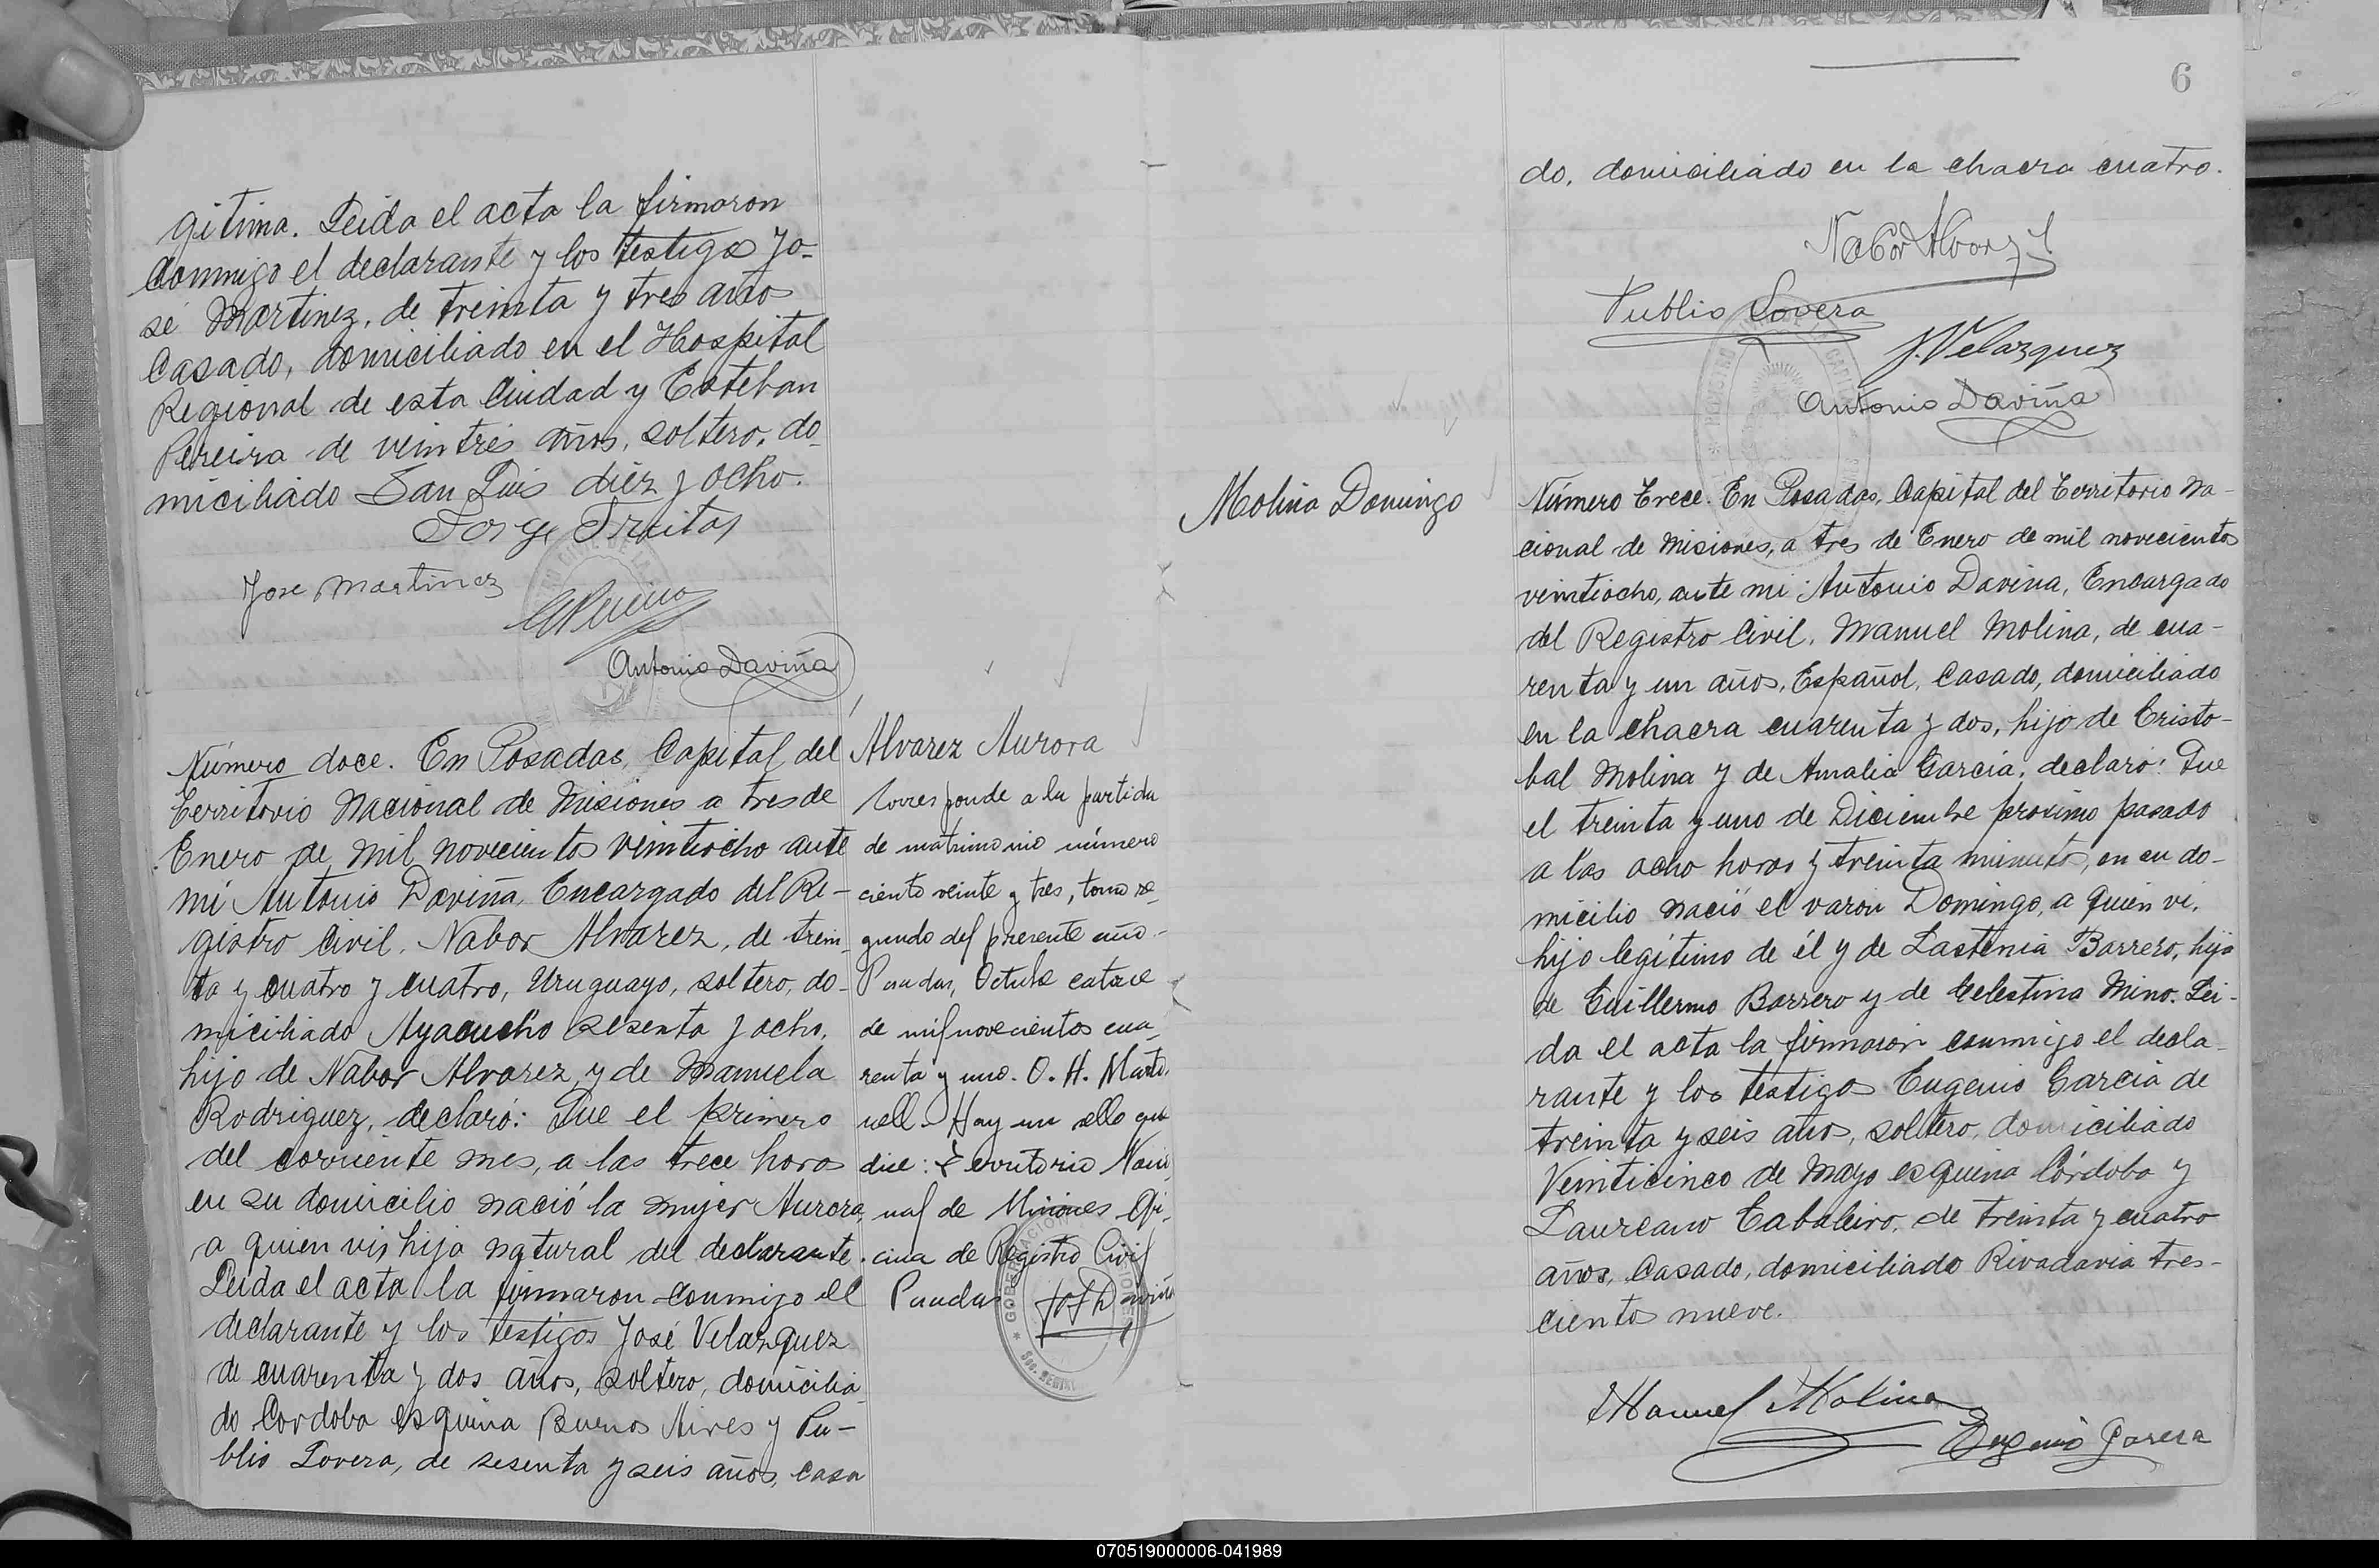 gitima. Leida el acta la firmaron
conmigo el declarante y los testigos Jo-
sé Martinez, de treinta y tres años
Casado, domiciliado en el Hospital
Regional de esta Ciudad y Esteban
Pereira de veintres años, soltero, do-
miciliado San Luis diez y ocho.
Jorge Freitas
Jose Martinez
Antonio Daviña
Número doce. En Posadas, Capital del
Territorio Nacional de Misiones a tres de
Enero de mil novecientos veintiocho ante
mi Antonio Daviña, Encargado del Re-
gistro Civil, Nabor Alvarez, de trein-
ta y cuatro y cuatro, Uruguayo, soltero, do-
miciliado Ayacucho sesenta y ocho,
hijo de Nabor Alvarez y de Manuela
Rodriguez, declaró: Que el primero
del corriente mes, a las trece horas
en su domicilio nació la mujer Aurora,
a quien vi, hija natural del declarante.
Leida el acta la firmaron conmigo el
declarante y los testigos José Velazquez
de cuarenta y dos años, soltero, domicilia-
do Cordoba esquina Buenos Aires y Pu-
blio Lovera, de sesenta y seis años, casa
Alvarez Aurora
Corresponde a la partida
de matrimonio número
ciento veinte y tres, tomo se-
gundo del presente año.-
Posadas, Octubre catorce
de mil novecientos cua-
renta y uno. O. H. Marto-
rell.- Hay un sello que
dice: Territorio Nacio-
nal de Misiones Ofi-
cina de Registro Civil
Posadas
6
do, domiciliado en la chacra cuatro.
Nabor Alvarez
Publio Lovera
J. Velazquez
Antonio Daviña
Molina Domingo
Número Trece. En Posadas, Capital del Territorio Na-
cional de Misiones, a tres de Enero de mil novecientos
veintiocho, ante mi Antonio Davina, Encargado
del Registro Civil, Manuel Molina, de cua-
renta y un años, Español, Casado, domiciliado
en la chacra cuarenta y dos, hijo de Cristo-
bal Molina y de Amalia Garcia, declaró: Que
el treinta y uno de Diciembre proximo pasado
a las ocho horas y treinta minutos, en su do-
micilio nació el varon Domingo, a quien vi,
hijo legitimo de él y de Lastenia Barrero, hija
de Guillermo Barrero y de Celestina Mino. Lei-
da el acta la firmaron conmigo el decla-
rante y los testigos Eugenio Garcia de
treinta y seis años, soltero, domiciliado
Veinticinco de Mayo esquina Córdoba y
Laureano Cabaleiro, de treinta y cuatro
años, Casado, domiciliado Rivadavia tres-
cientos nueve.
Manuel Molina
Eugenio Garcia
070519000006-041989